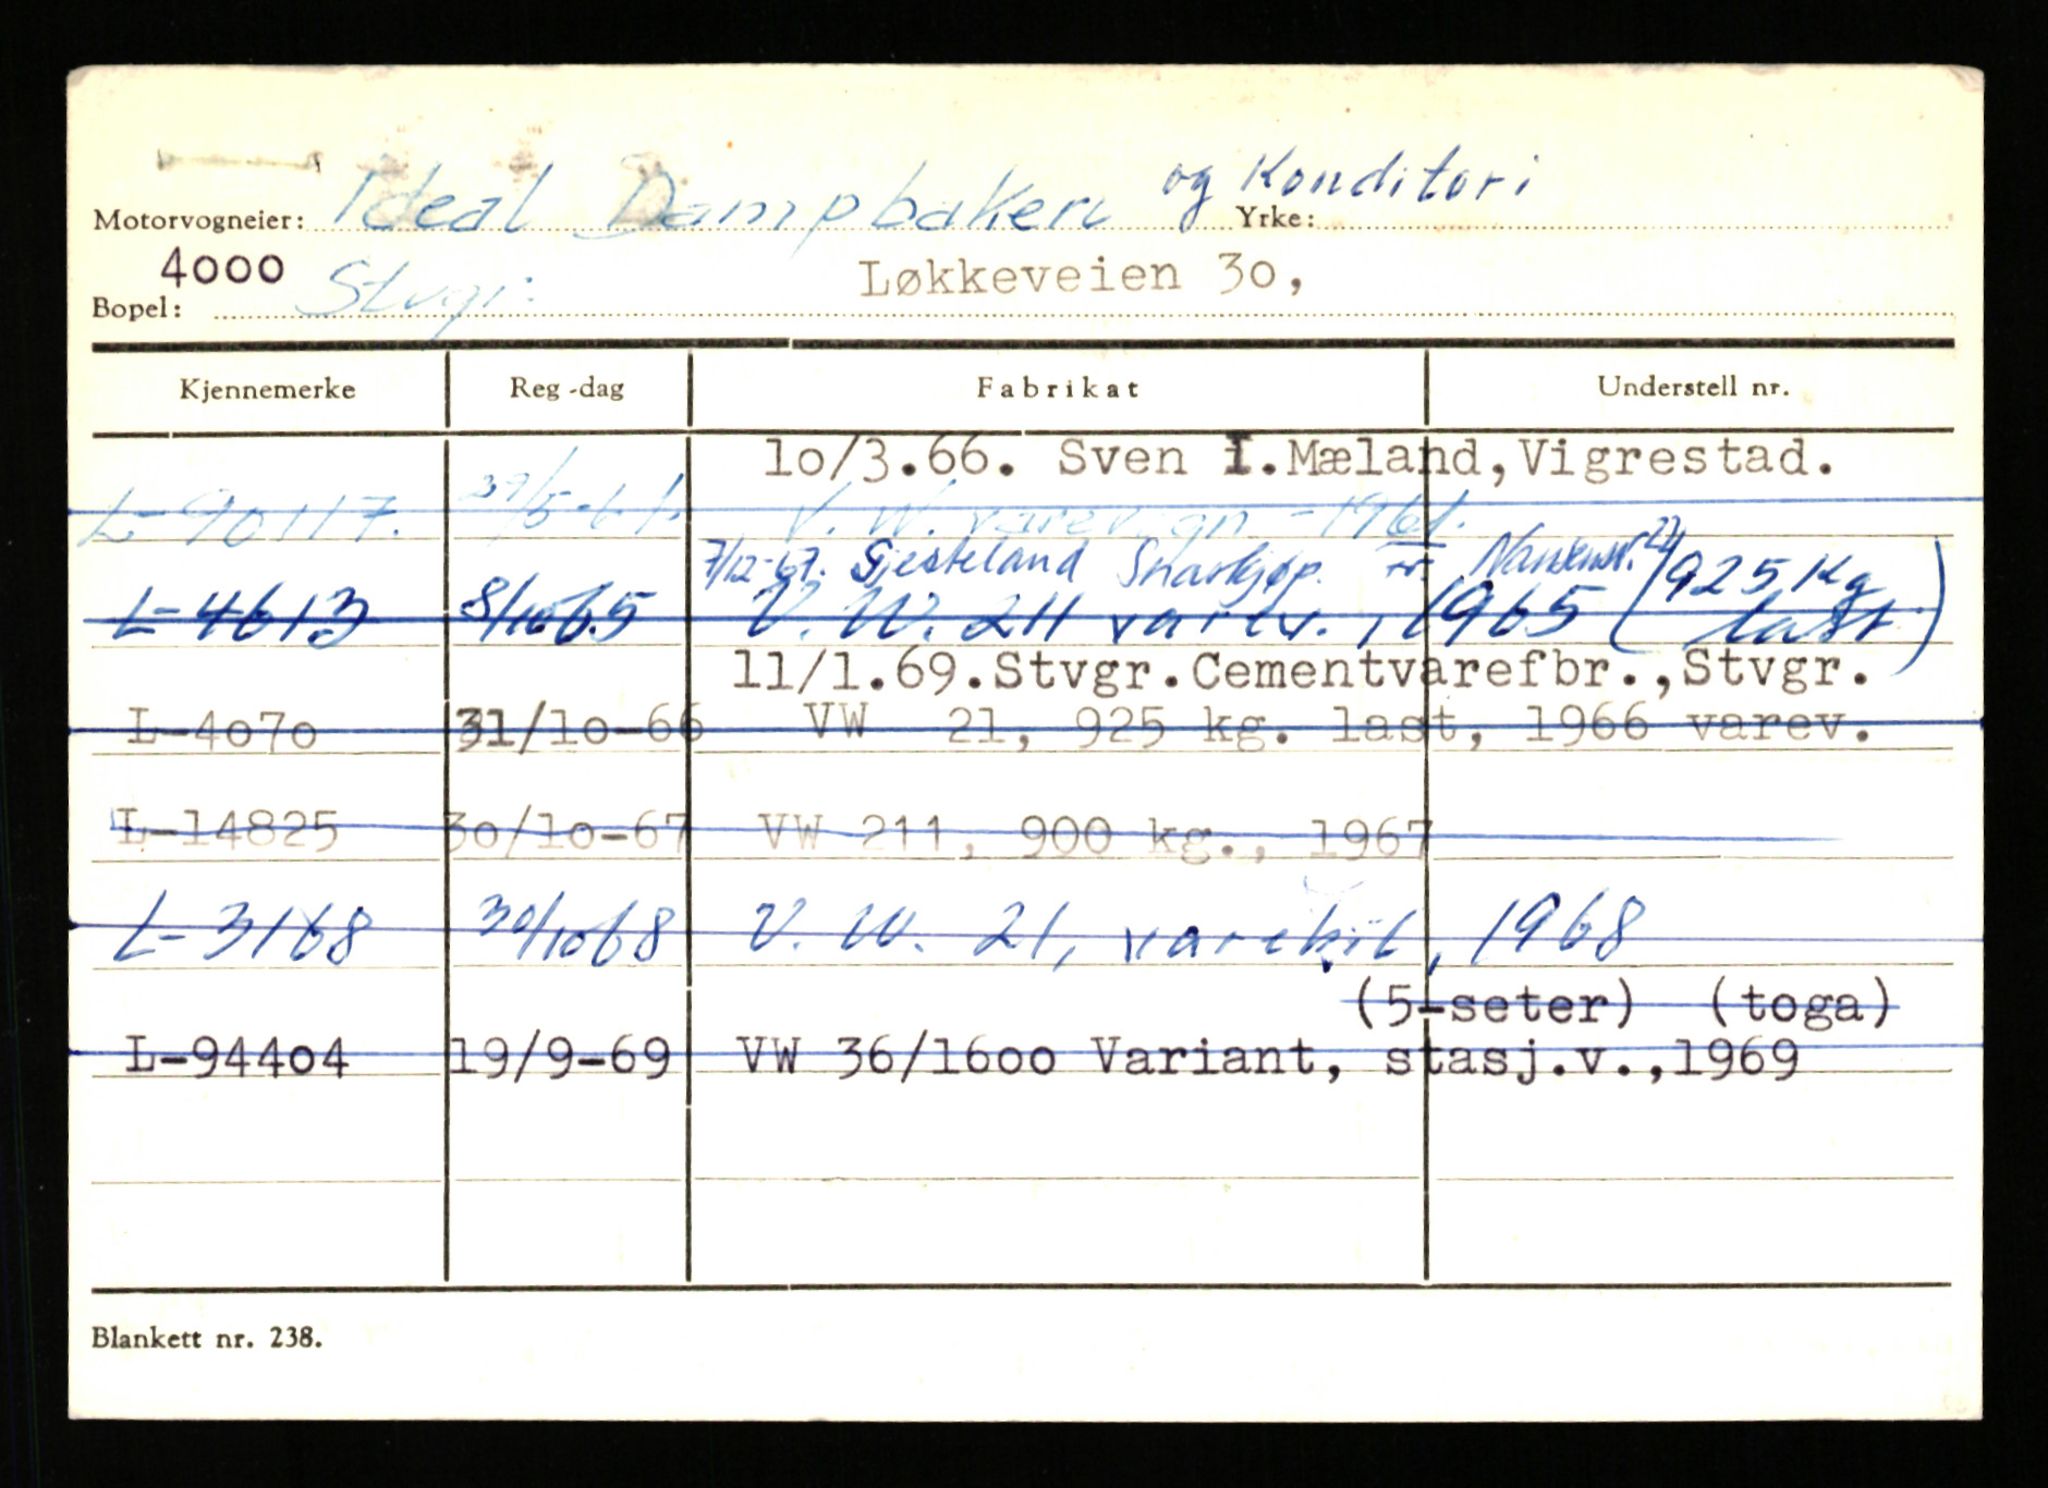 Motorvogneier: Ideal Dampbakeri og Konditori Yrke:
4000 Stvgr. Løkkeveien 30,
Bopel:
Kjennemerke Reg-dag Fabrikat Understell nr.
10/3.66. Sven I.Mæland,Vigrestad.
L-90117. 29/5-61. V.W. varevogn -1961.
7/12-67. Sjesteland nr. 22
L-4613 8/10 65 V.W. 211 varev., 1965 (925 Kg last)
11/1.69.Stvgr.Cementvarefbr.,Stvgr.
L-4070 31/10-66 VW 21, 925 kg. last, 1966 varev.
L-14825 30/10-67 VW 211, 900 kg., 1967
L-3168 30/10 68 V.W. 21, varebil, 1968
(5-seter) (toga)
L-94404 19/9-69 VW 36/1600 Variant, stasj.v.,1969
Blankett nr. 238.